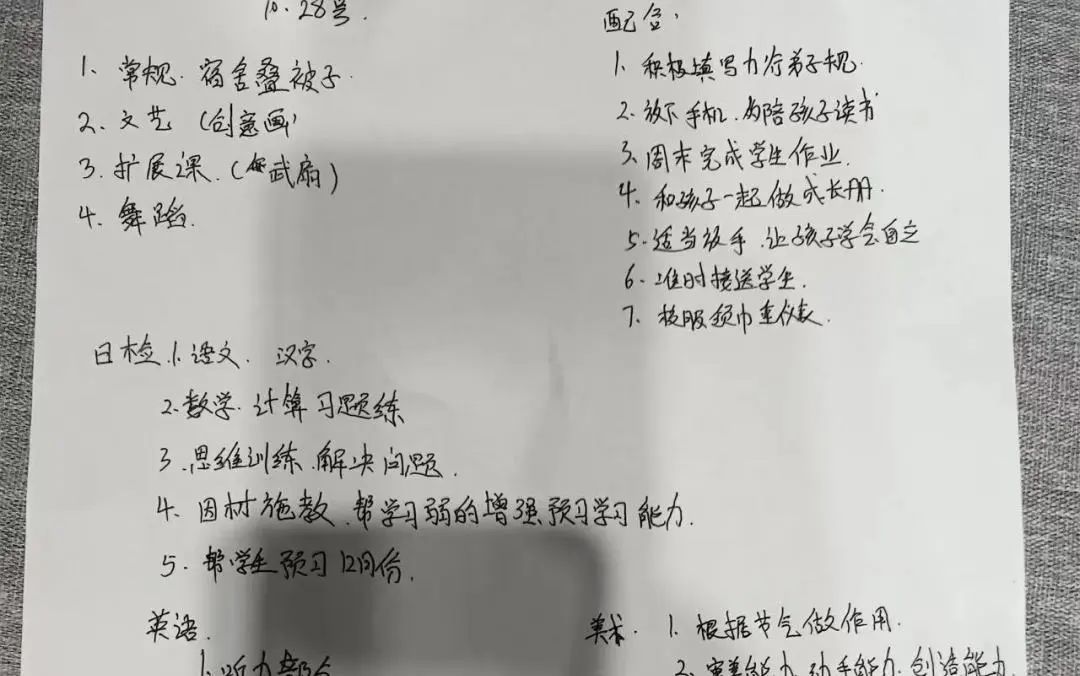 10.28号.
1、常规.宿舍叠被子.
2、文艺(创意画)
3.扩展课.(武扇)
4.舞蹈.
配合:
1、积极填写力行弟子规.
2.放下手机,为陪孩子读书
3、周末完成学生作业.
4.和孩子一起做成长册.
5.适当放手.让孩子学会自立
6.准时接送学生.
7.校服领巾重仪表.
日检.1.语文.汉字.
2.数学.计算习题练
3.思维训练.解决问题.
4.因材施教.帮学习弱的增强预习学习能力.
5.帮学生预习12月份.
英语.
1.听力部分
美术.1.根据节气做作用.
2.审美能力.动手能力.创造能力.